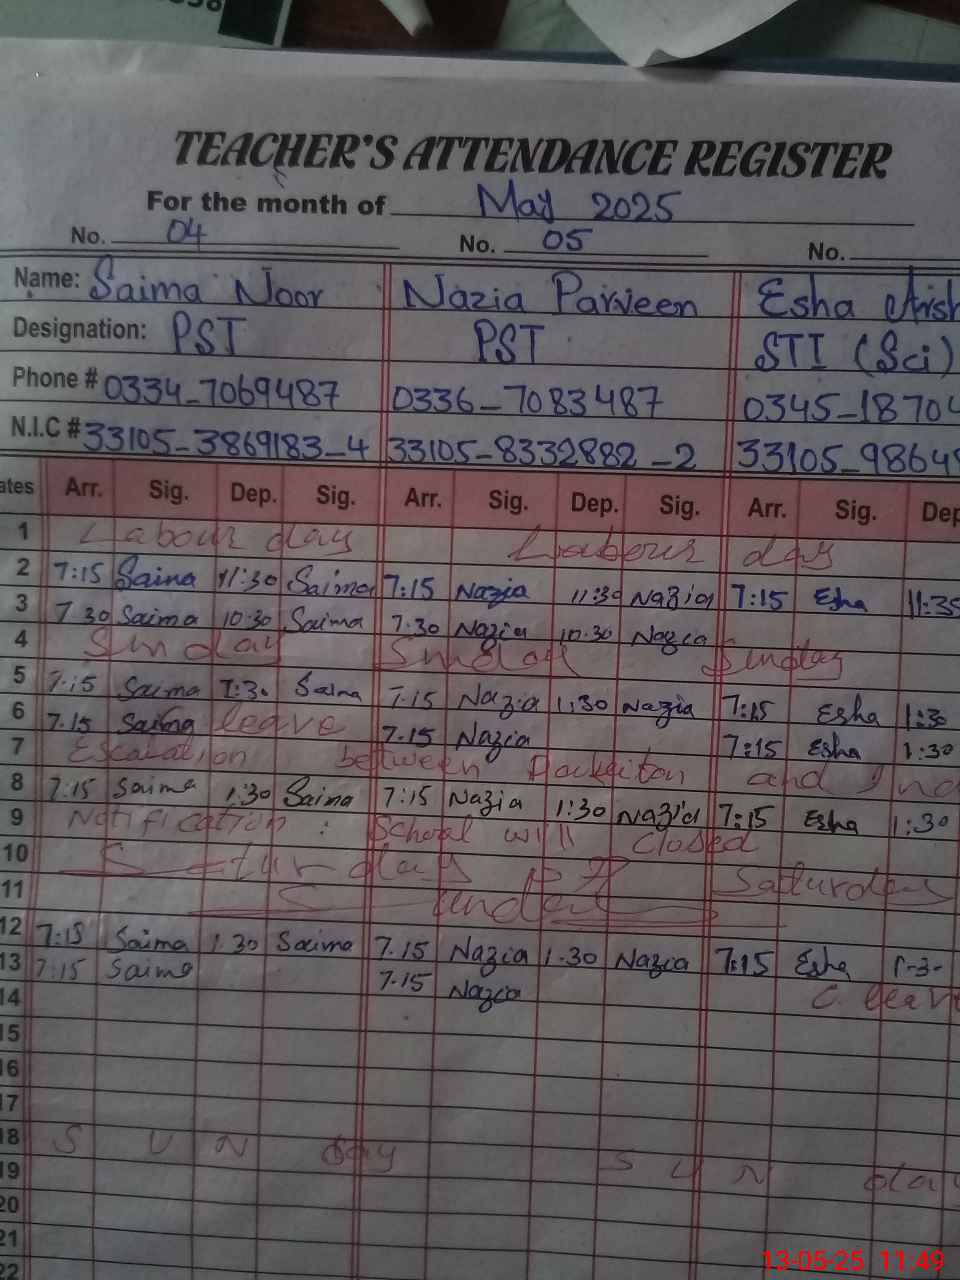 TEACHER'S ATTENDANCE REGISTER
For the month of May 2025
No. 04 No. 05 No.
Name: Saima Noor Nazia Parveen Esha
Designation: PST PST STI (Sci)
Phone # 0334-7069487 0336-7083487 0345-1870
N.I.C # 33105-3869183-4 33105-8332882-2 33105-9864
ates Arr. Sig. Dep. Sig. Arr. Sig. Dep. Sig. Arr. Sig. Dep
1 Labour day Labour day
2 7:15 Saima 11:30 Saima 7:15 Nazia 11:30 Nazia 7:15 Esha 11:35
3 7 30 Saima 10:30 Saima 7.30 Nazia 10.30 Nazia
4 Sunday Sunday Sunday
5 7:15 Saima 1:30 Saima 7.15 Nazia 1:30 Nazia 7:15 Esha 1:30
6 7.15 Saima leave 7.15 Nazia 7:15 Esha 1:30
7 Escalation between and Ind
8 7:15 Saima 1:30 Saima 7:15 Nazia 1:30 Nazia 7:15 Esha 1:30
9 Notification: School will closed
10 Saturday Saturday
11 Sunday
12 7:15 Saima 1.30 Saima 7.15 Nazia 1.30 Nazia 7:15 Esha 1-3-
13 7:15 Saima 7.15 Nazia C. leav
14
15
16
17
18 SUN day SUN day
19
20
21
22
13-05-25 11:49